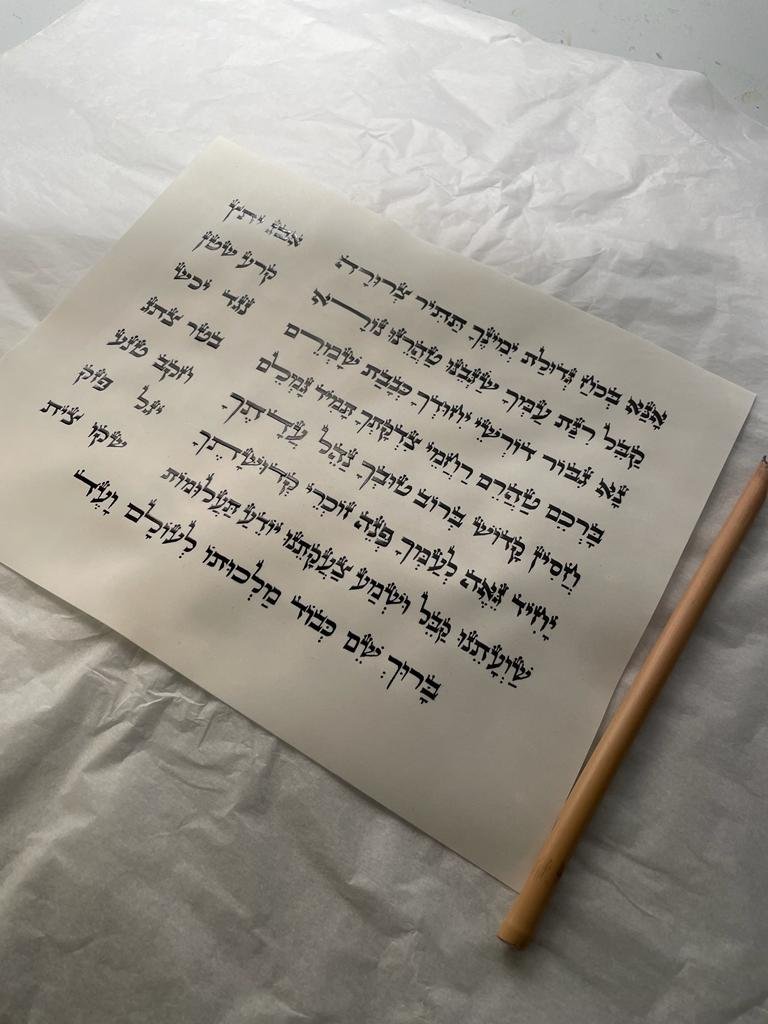 אָנָּא בְּכֹחַ גְּדוּלַת יְמִינְךָ תַּתִּיר צְרוּרָה אבג יתץ
קַבֵּל רִנַּת עַמְּךָ שַׂגְּבֵנוּ טַהֲרֵנוּ נוֹרָא קרע שטן
נָא גִּבּוֹר דּוֹרְשֵׁי יִחוּדְךָ כְּבָבַת שָׁמְרֵם נגד יכש
בָּרְכֵם טַהֲרֵם רַחֲמֵי צִדְקָתְךָ תָּמִיד גָּמְלֵם בטר צתג
חֲסִין קָדוֹשׁ בְּרוֹב טוּבְךָ נַהֵל עֲדָתֶךָ חקב טנע
יָחִיד גֵּאֶה לְעַמְּךָ פְּנֵה זוֹכְרֵי קְדוּשָּׁתֶךָ יגל פזק
שַׁוְעָתֵנוּ קַבֵּל וּשְׁמַע צַעֲקָתֵנוּ יוֹדֵעַ תַּעֲלוּמוֹת שקו צית
בָּרוּךְ שֵׁם כְּבוֹד מַלְכוּתוֹ לְעוֹלָם וָעֶד